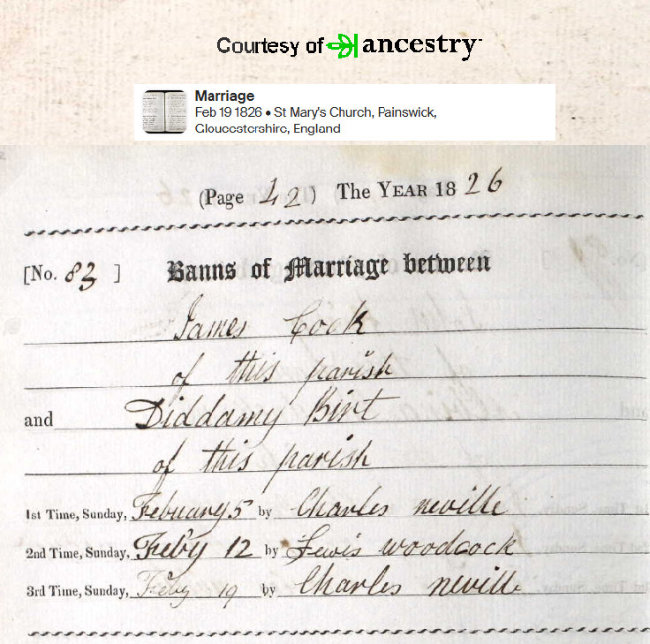 Courtesy of ancestry
Marriage
Feb 19 1826 • St Mary's Church, Painswick,
Gloucestershire, England
(Page 42) The YEAR 18 26
[No. 83 ] Banns of Marriage between
James Cook
of this parish
and Diddamy Birt
of this parish
1st Time, Sunday, February 5 by Charles neville
2nd Time, Sunday, Feby 12 by Lewis woodcock
3rd Time, Sunday, Feby 19 by Charles neville